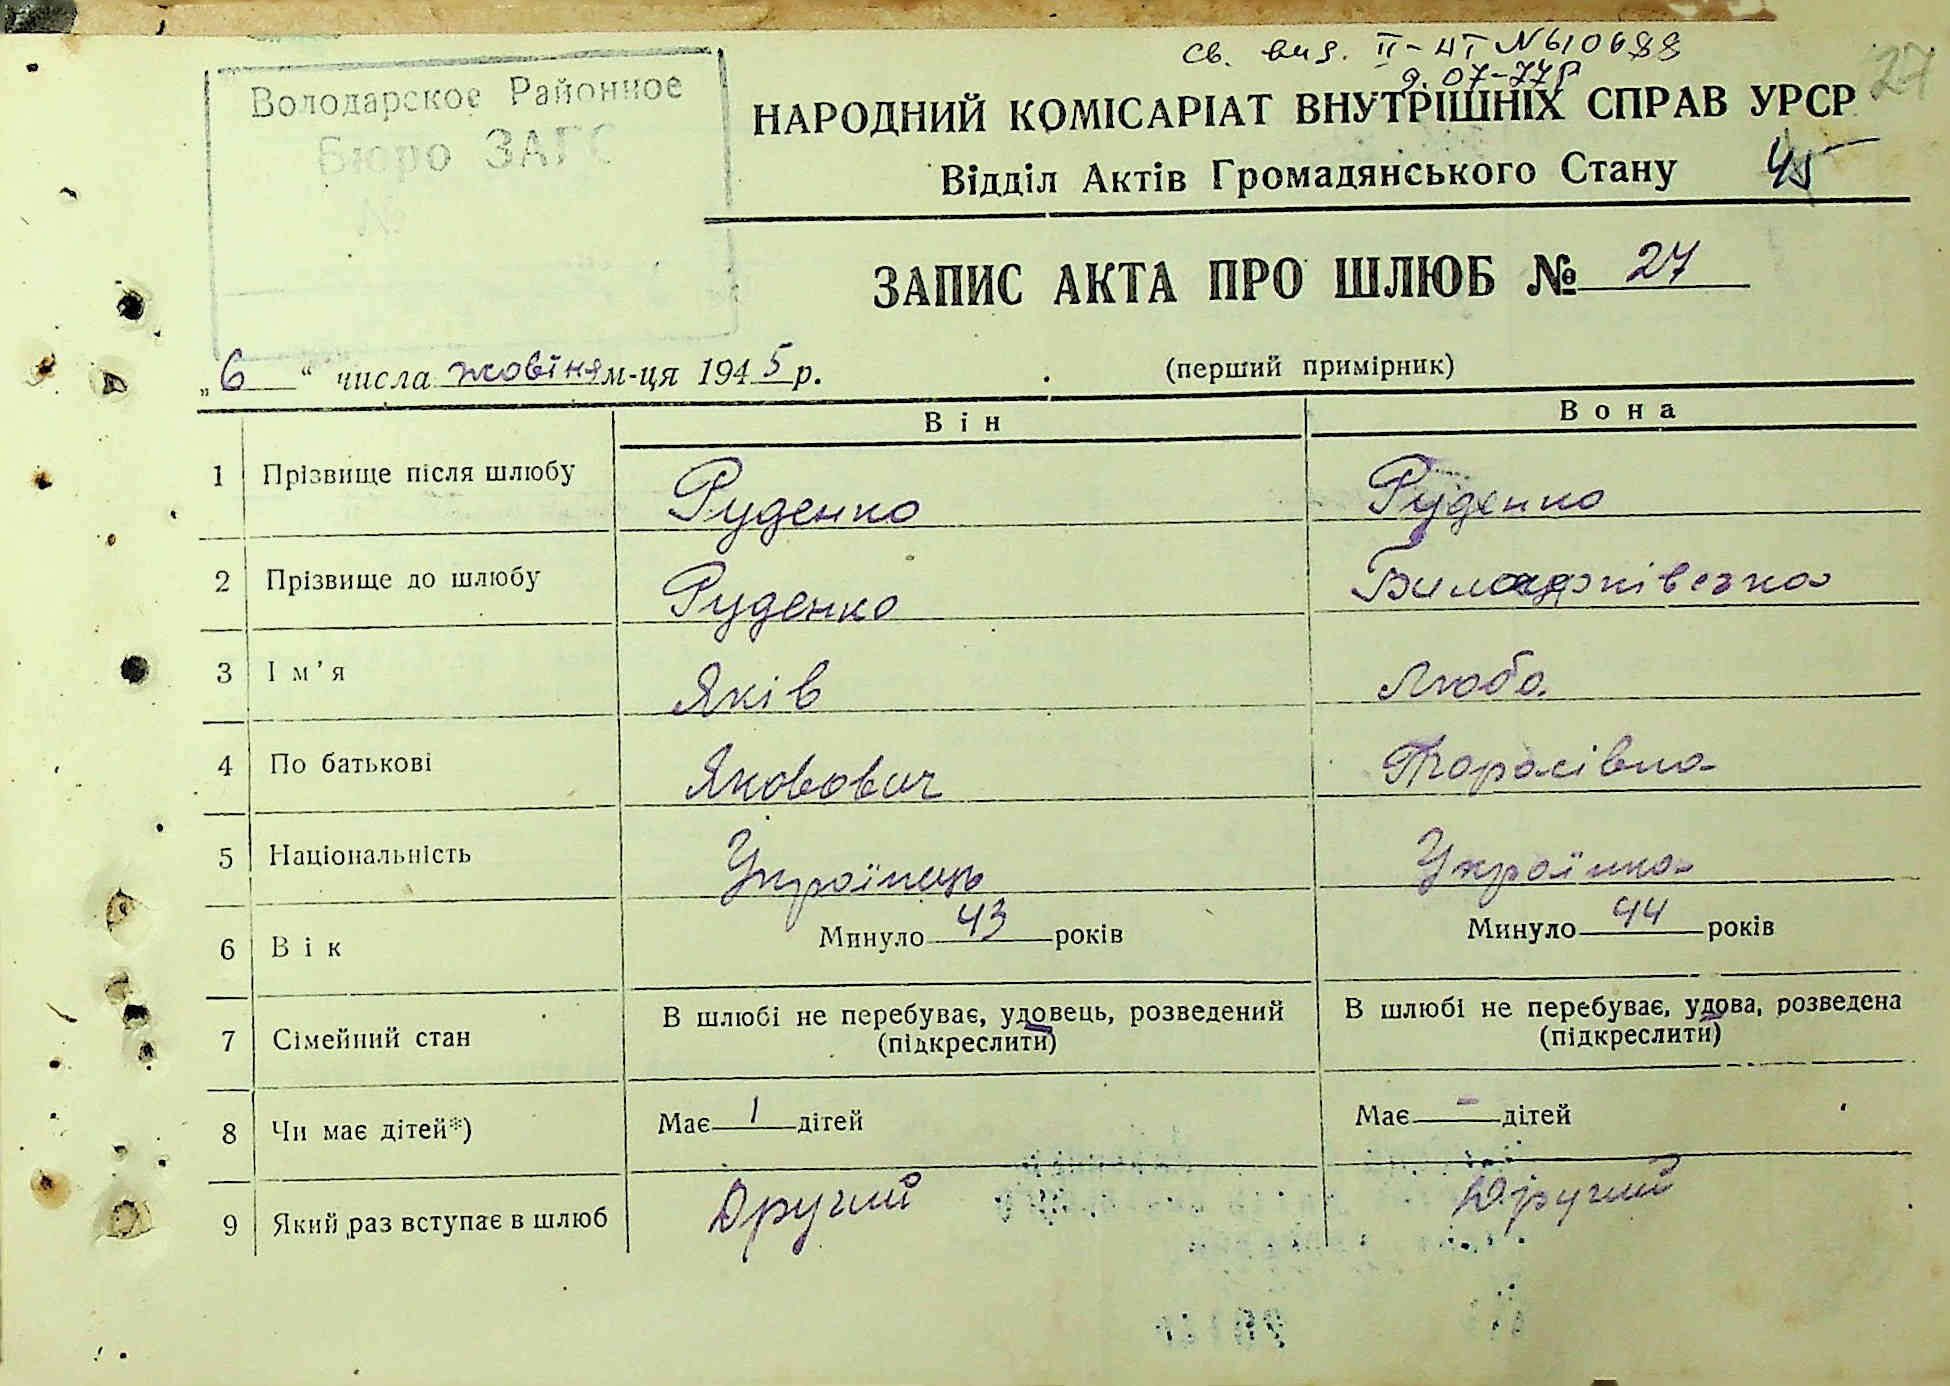 св. вид. II-НТ №610688
9.07-77р
27
Володарское Районное
Бюро ЗАГС
№
НАРОДНИЙ КОМІСАРІАТ ВНУТРІШНІХ СПРАВ УРСР
Відділ Актів Громадянського Стану 45
ЗАПИС АКТА ПРО ШЛЮБ № 27
„6“ числа жовтня м-ця 1945 р. (перший примірник)
Він Вона
1 Прізвище після шлюбу Руденко Руденко
2 Прізвище до шлюбу Руденко
3 Ім'я Яків Люба
4 По батькові Якович Тарасівна
5 Національність Українець Українка
6 Вік Минуло 43 років Минуло 44 років
7 Сімейний стан В шлюбі не перебуває, удовець, розведений (підкреслити) В шлюбі не перебуває, удова, розведена (підкреслити)
8 Чи має дітей*) Має 1 дітей Має - дітей
9 Який раз вступає в шлюб Другий Другий